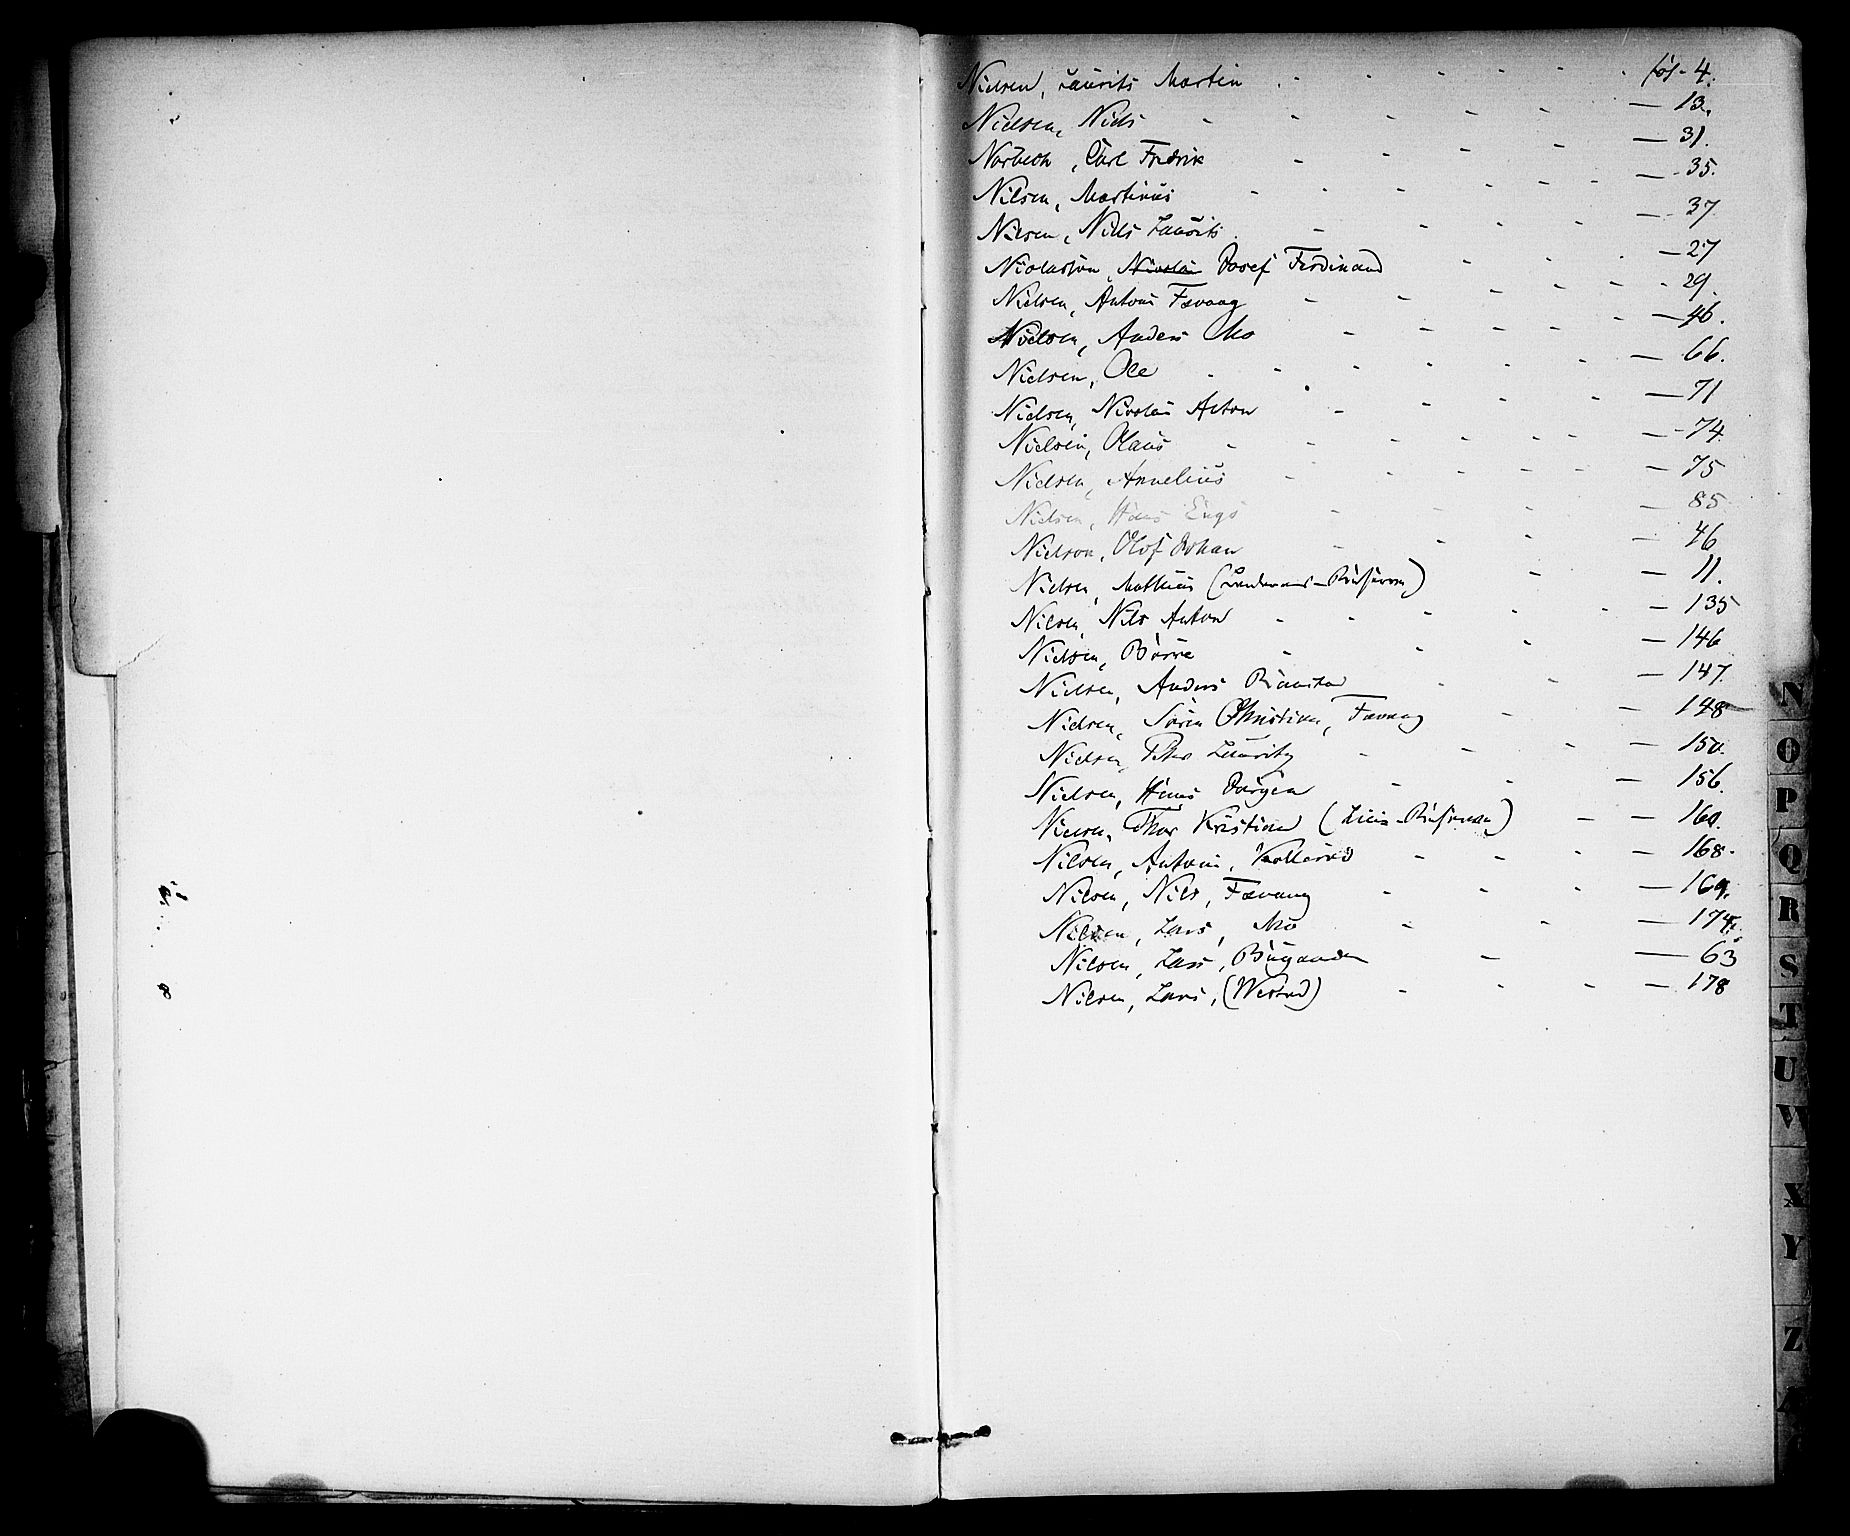 Nielsen, Laurits Martin - - - - - - fol. 4.
Nielsen, Niels - - - - - - — 13.
Norbech, Carl Fredrik - - - - — 31.
Nilsen, Martinus - - - - - - — 35.
Nilsen, Niels Laurits - - - - — 37
Niclassen, Josef Ferdinand - - - — 27
Nielsen, Antons Fævang - - - - - - 29.
Nielsen, Anders Mo - - - - - — 46.
Nielsen, Ole - - - - - — 66.
Nielsen, Nicolai Anton - - - - — 71
Nielsen, Olaus - - - - - — 74
Nielsen, Annelius - - - - - — 75
Nielsen, Hans Engø - - - — 85
Nielson, Olof Johan - - - — 46
Nielsen, Mathias - — 11.
Nilsen, Nils Anton - - - - - — 135
Nielsen, Börre - - - — 146
Nielsen, Anders - - — 147.
Nielsen, Sören Christian, Fævang - — 148
Nielsen, Peter Lauritz - - - — 150.
Nielsen, Hans Jørgen - - — 156.
Nielsen, Thor Kristian — — 160.
Nilsen, Anton - - - — 168.
Nilsen, Nils, Fævang - - - — 169.
Nilsen, Lars, Mo - - — 174.
Nilsen, Lars, Bugaarden — — 63
Nilsen, Lars, - - - — 178
N
O
P
Q
R
S
T
U
W
X
Y
Z